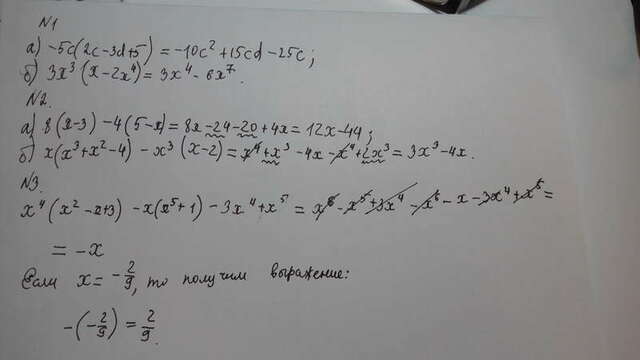 N1
а) -5c(2c-3d+5) = -10c² + 15cd - 25c;
б) 3x³(x-2x⁴) = 3x⁴ - 6x⁷.
N2.
а) 8(x-3) - 4(5-x) = 8x - 24 - 20 + 4x = 12x - 44;
б) x(x³+x²-4) - x³(x-2) = x⁴ + x³ - 4x - x⁴ + 2x³ = 3x³ - 4x.
N3.
x⁴(x²-x+3) - x(x⁵+1) - 3x⁴ + x⁵ = x⁶ - x⁵ + 3x⁴ - x⁶ - x - 3x⁴ + x⁵ =
= -x
Если x = -2/9, то получим выражение:
-(-2/9) = 2/9.